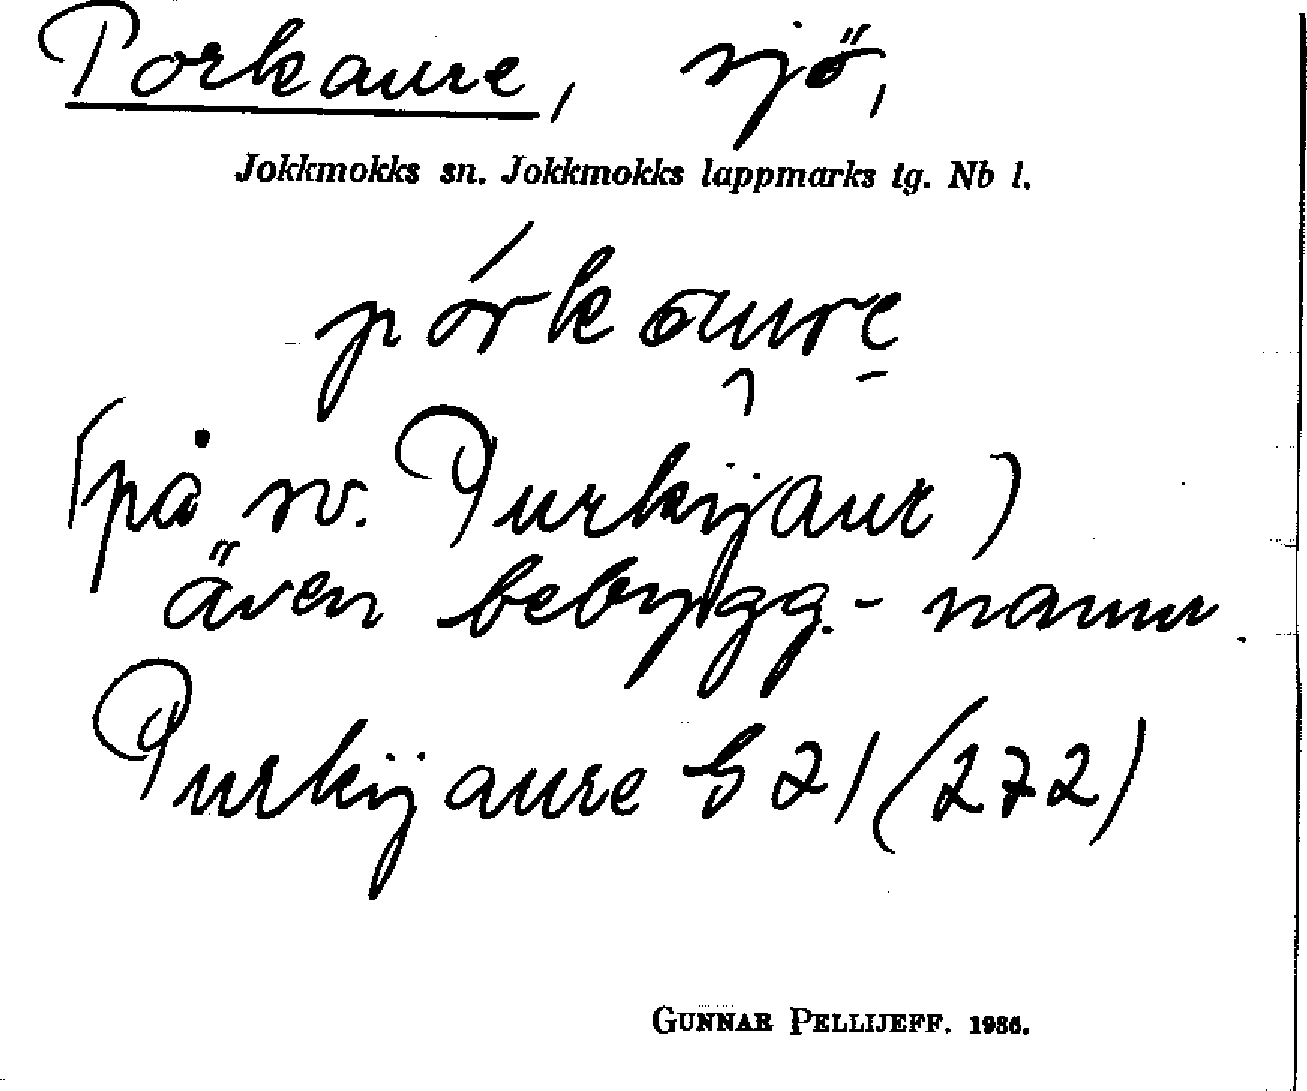 Porkaure, sjö,
Jokkmokks sn. Jokkmokks lappmarks tg. Nb l.
pórkaure̱
(på sv. Purkijaur)
även bebygg.-namn.
Purkijaure G 21 (272)
GUNNAR PELLIJEFF. 1986.